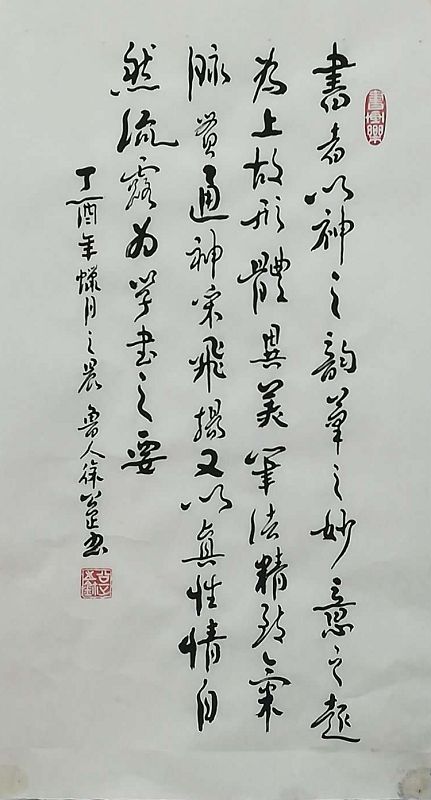 書者以神之韵筆之妙意之趣
為上故形體異美筆法精致氣
脉贯通神采飛揚又以真性情自
然流露為学書之要
丁酉年蜡月之晨 魯人徐 书